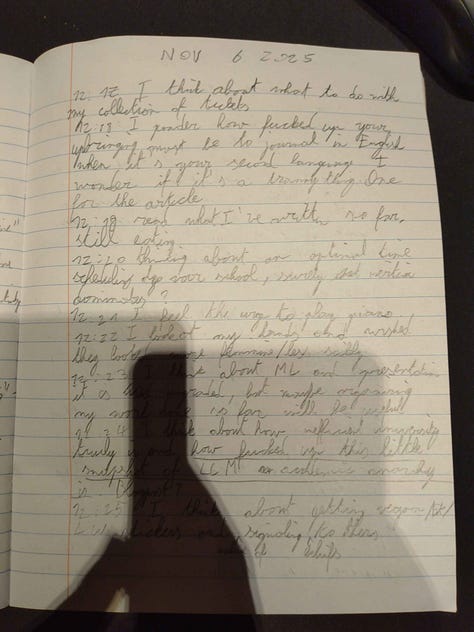 NOV 6 2025
12:17 I think about what to do with
my collection of tickets
12:18 I ponder how fucked up your
upbringing must be to journal in English
when it's your second language I
wonder if it's a tranny thing. One
for the article
12:19 read what I've written so far,
still eating
12:20 thinking about an optimal time
scheduling algo your school, surely
dominates?
12:21 I feel the urge to play piano
12:22 I look at my hands and wished
they looked more feminine/less
12:23 I think about ML and presentation
it is graded, but maybe organising
my work done so far will be useful
12:24 I think about how university
truly is and how fucked up this little
snapshot of LLM academic anarchy
is.
12:25 I think about getting vegan
stickers and signaling to others